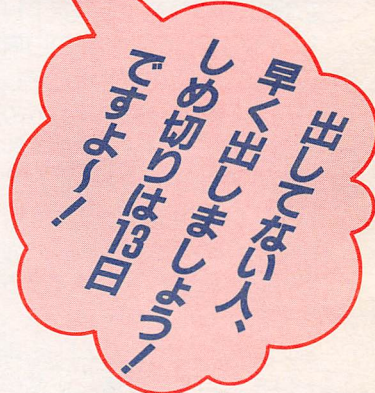 出してない人、
早く出しましょう!
しめ切りは13日
ですよ〜!